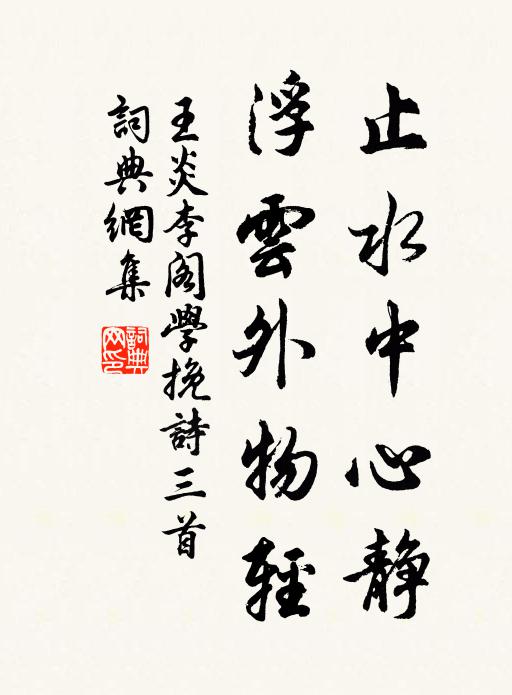 止水中心静
浮雲外物輕
王炎李阁學挽詩三首
詞典網集
詞典
网印